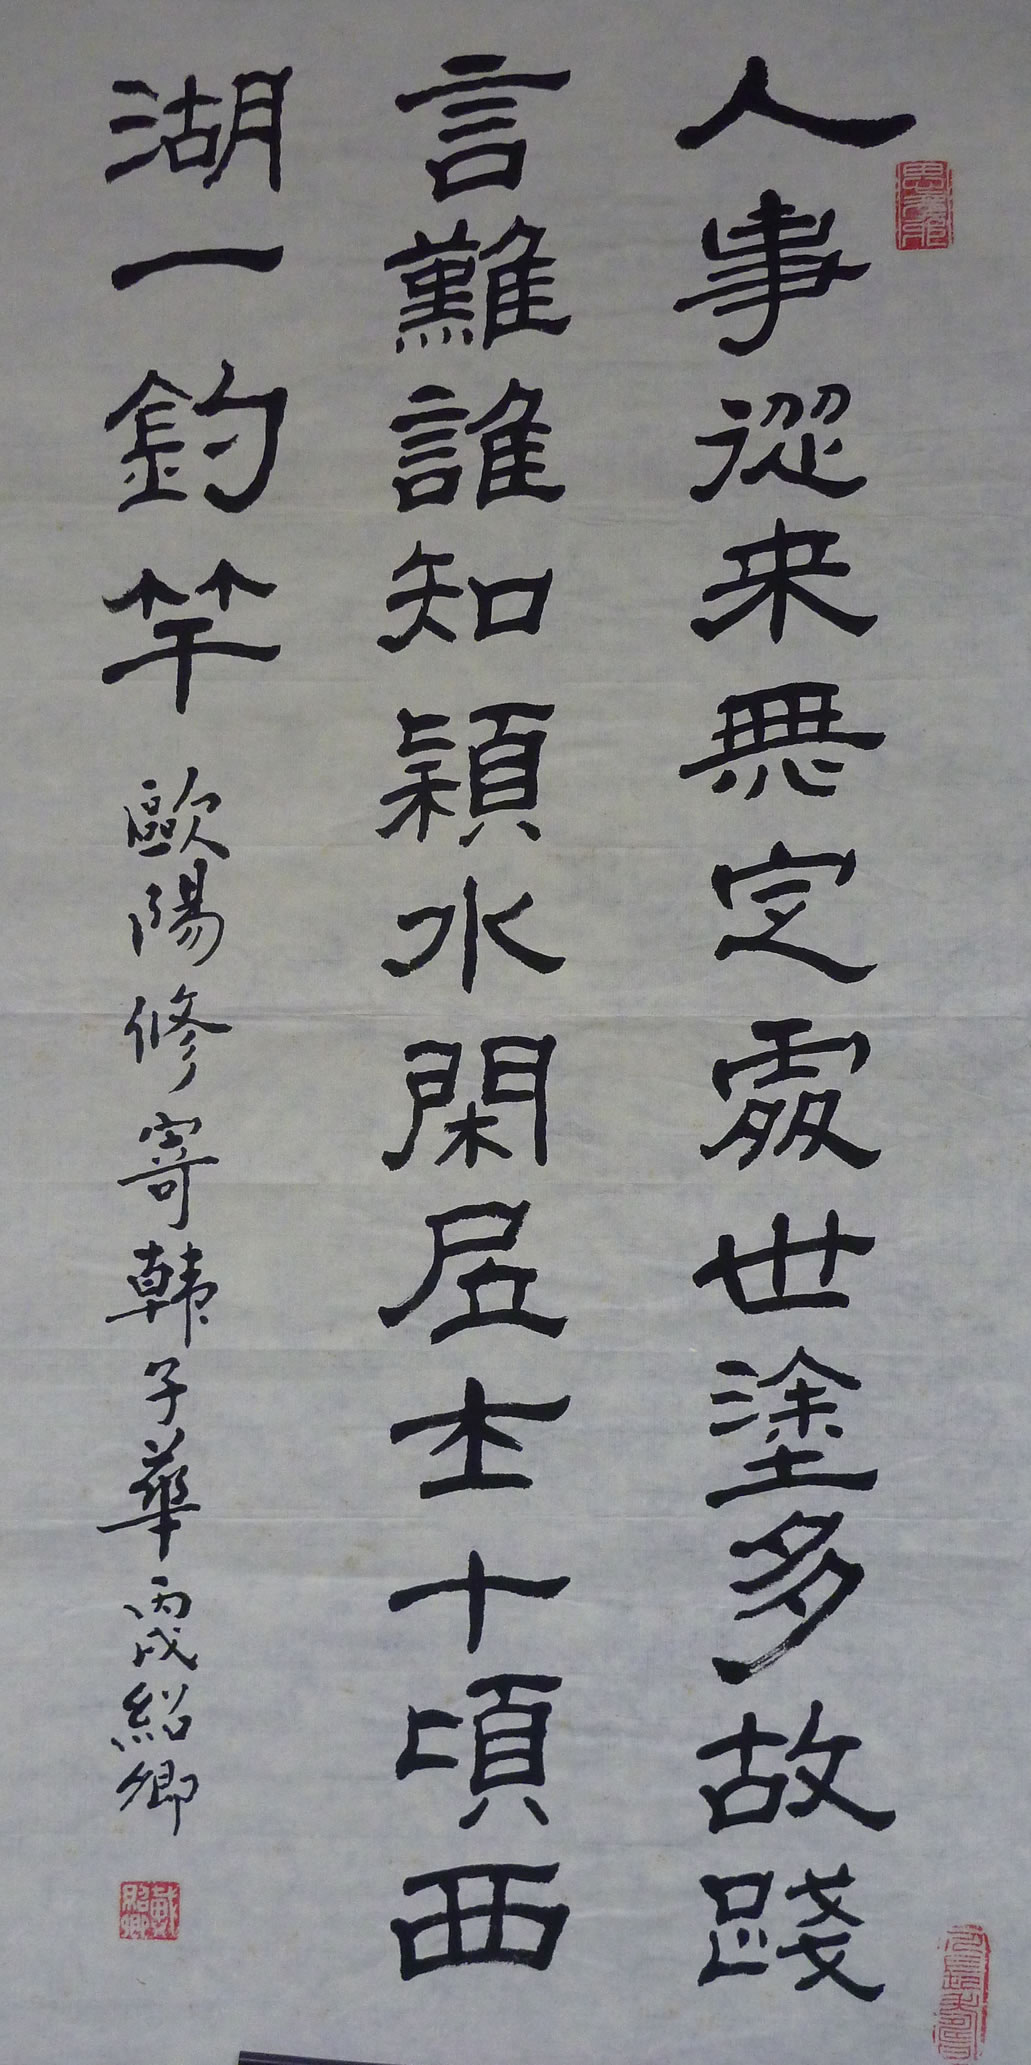 人事從来無定處世塗多故踐
言難誰知潁水閑居士十頃西
湖一釣竿 歐陽修寄韓子華 丙戌紹卿
戴紹卿